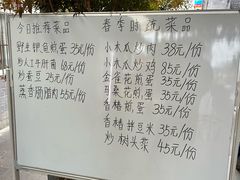 今日推荐菜品
野生钾鱼煎蛋 35元/份
炒人工牛肝菌 68元/份
炒蚕豆 25元/份
蒸香肠腊肉 55元/份
春季时蔬菜品
小木瓜炒肉 38元/份
小木瓜炒鸡 85元/份
金雀花煎蛋 35元/份
苦桑花煎蛋 35元/份
香椿煎蛋 35元/份
香椿拌豆米 35元/份
炒树头菜 45元/份